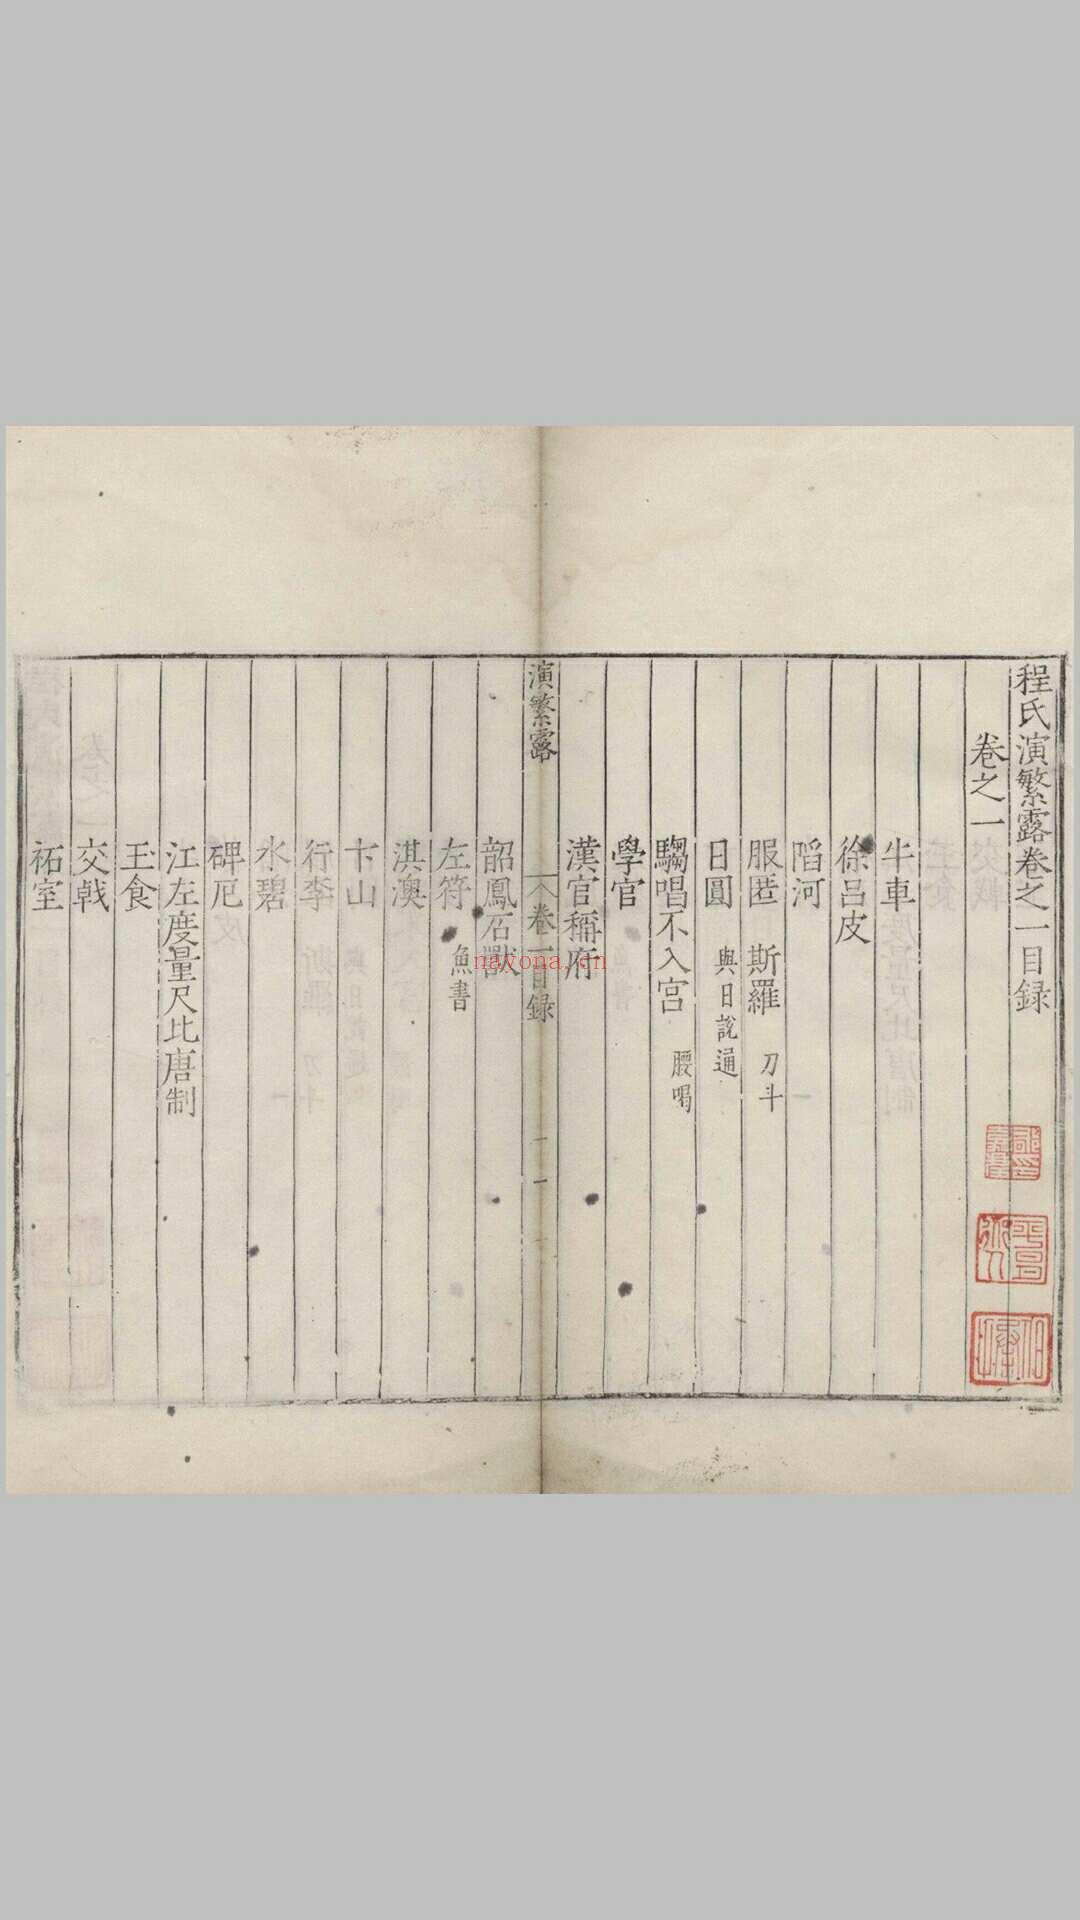 程氏演繁露卷之一目録
卷之一
牛車
徐呂皮
䧟河
服匿 斯羅 刀斗
日圓 與日説通
騶唱不入宮 腰喝
學官
漢官稱府
演繁露 卷一目録 一
韶鳳石獸
左符 魚書
淇澳
卞山
行李
水碧
碑厄
江左度量尺比唐制
玉食
交戟
祏室
nayona.cn